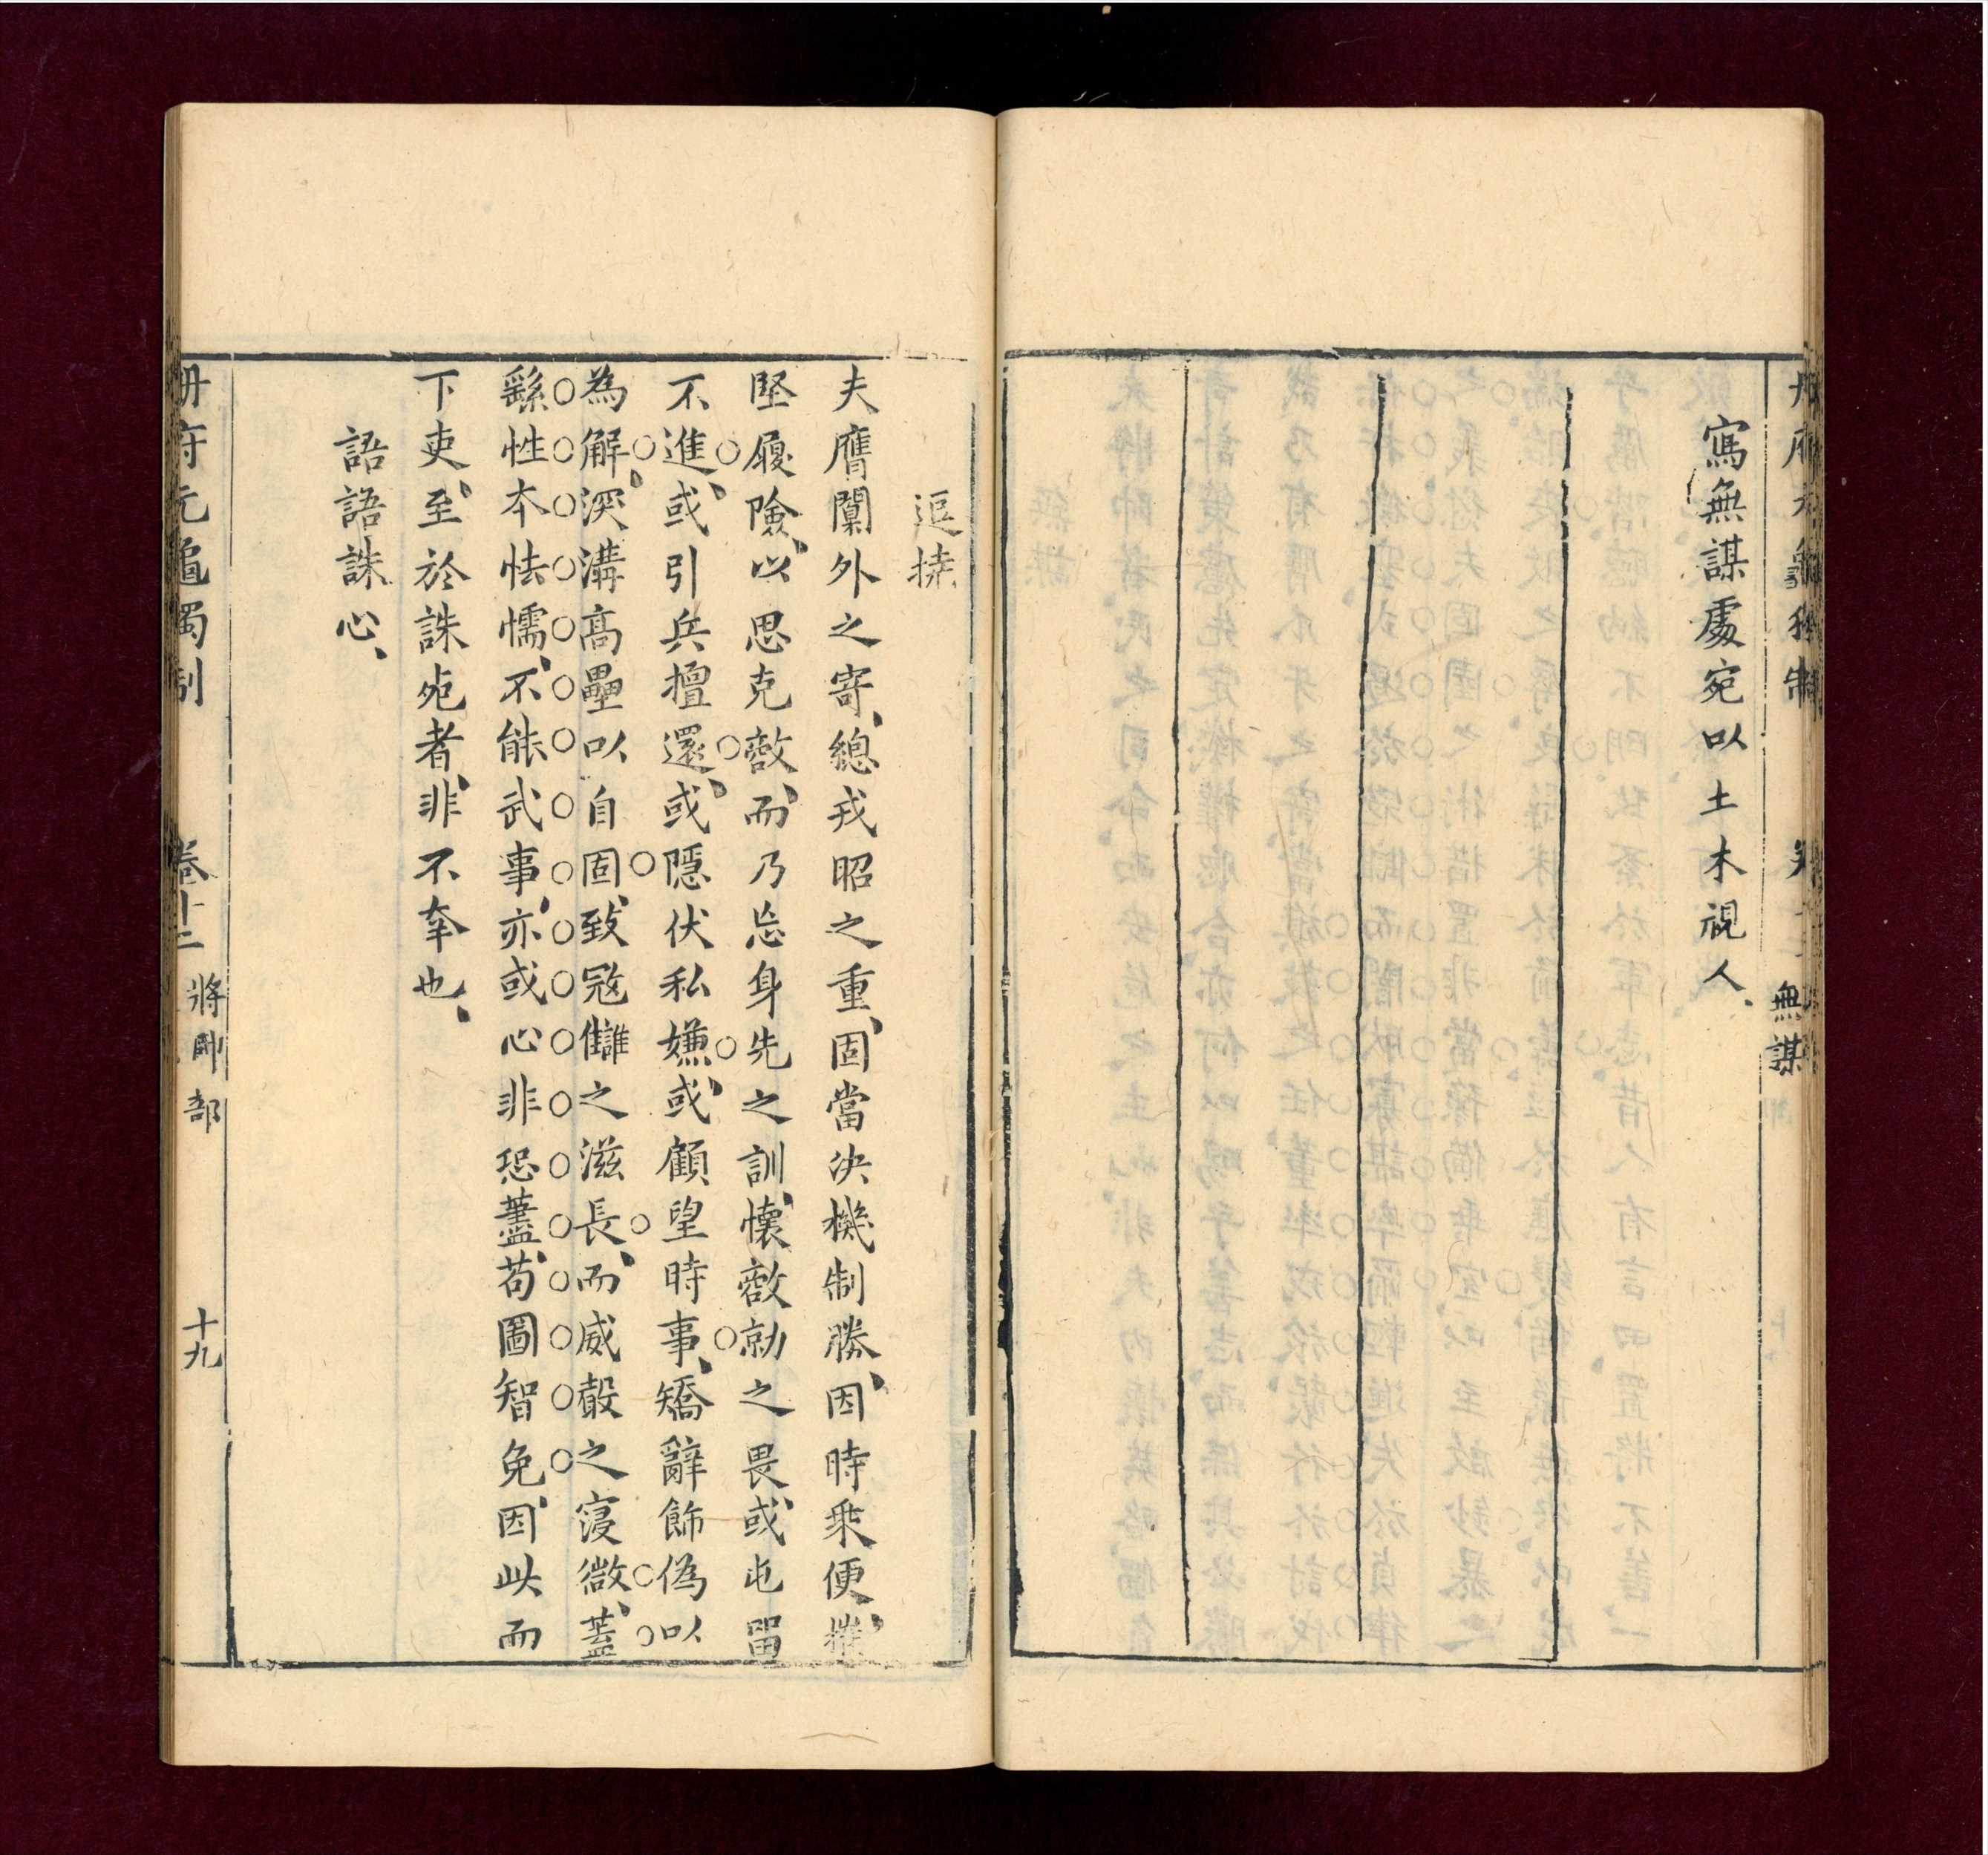 無謀
寫無謀處宛以土木視人、
逗撓
夫膺閫外之寄、總戎昭之重、固當決機制勝、因時乘便、摧
堅履險、以思克敵、而乃忘身先之訓、懷敵勍之畏、或屯畱
不進、或引兵擅還、或隱伏私嫌、或顧望時事、矯辭飾偽以
為解、深溝高壘以自固、致寇讎之滋長、而威聲之寖微、蓋
繇性本怯懦、不能武事、亦或心非忠藎、苟圖智免、因此而
下吏、至於誅死者、非不幸也、
語語誅心、
冊府元龜獨制 卷十二 將帥部 十九